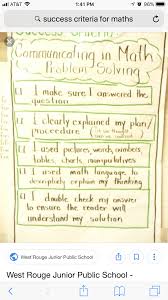 1:41 PM
96%
success criteria for maths
Success Criteria
Communicating in Math
Problem Solving
I make sure I answered the
question
I clearly explained my plan/
procedure
I used pictures, words, numbers,
tables, charts, manipulatives
I used math language to
explain my thinking
I double check my answer
to ensure the reader will
understand my solution
West Rouge Junior Public School
West Rouge Junior Public School -